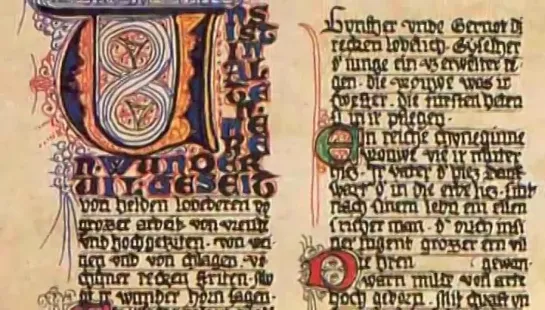 U NS
IST
IN AL
N WUNDER
UIL GESEIT
von helden loveberen vo
grozer arbeit · von vreude
vnd hochgeziten · von wei
nen vnd von chlagen · vo
chuner recken striten · Mv
gt ir wunder horn sagen ·
Gvnther vnde Gernot di
recken lobelich · Gyselher
d' iunge ein vz erwelter te
gen · die vrouwe was ir
swester · die fursten heten
si in ir pflegen ·
Ein reiche chuneginne
vrouwe vte ir muter
hiez · ir vater d' hiez Danc
wart · d' in die erbe liez · sint
nach sinem lebn ein ellen
richer man · d' ouch in si
ner iugent grozzer ern vil
Die hren gewan ·
waren milde von arte
hoch geborn · Mit chraft vn